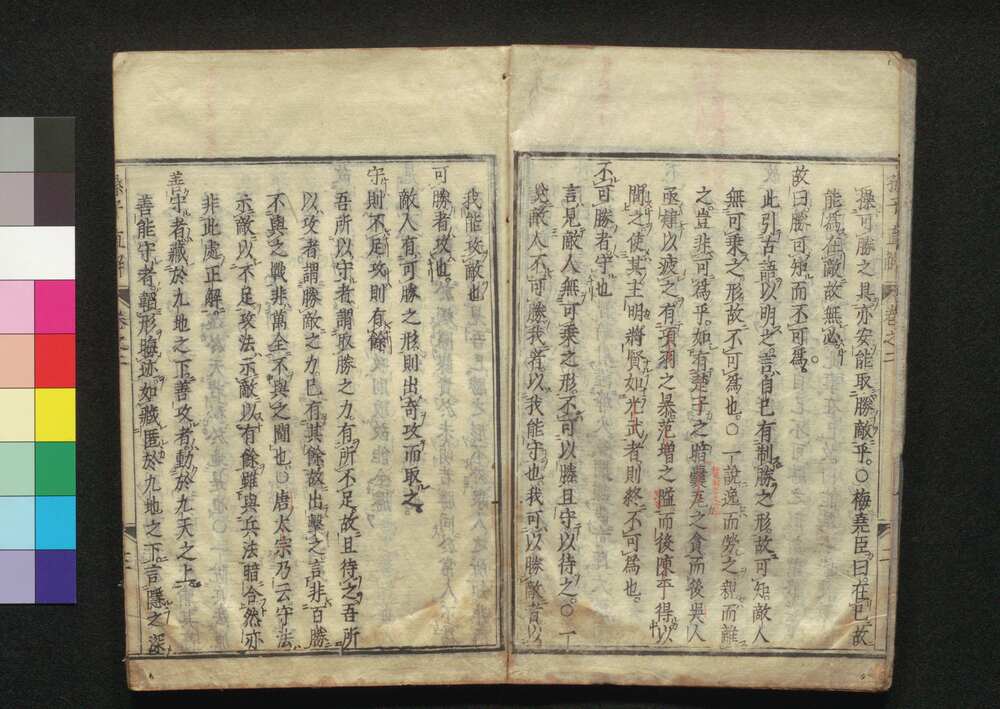 操可勝之具亦安能取勝敵乎○梅堯臣曰在己故
能爲在敵故無必
故曰勝可知而不可爲
此引古語以明之言自己有制勝之形故可知敵人
無可乘之形故不可爲也○一說逸而勞之親而離
之豈非可爲乎如有楚子之暗囊瓦之貪而後吳人
亟肄以疲之有項羽之暴范增之隘而後陳平得以
間之使其主明將賢如光武者則終不可爲也
不可勝者守也
言見敵人無可乘之形不可以勝且守以待之○一
說敵人不可勝我者以我能守也我可以勝敵者以
我能攻敵也
可勝者攻也
敵人有可勝之形則出奇攻而取之
守則不足攻則有餘
吾所以守者謂取勝之力有所不足故且待之吾所
以攻者謂勝敵之力已有其餘故出擊之言非百勝
不與之戰非萬全不與之鬪也○唐太宗乃云守法
示敵以不足攻法示敵以有餘雖與兵法暗合然亦
非此處正解
善守者藏於九地之下善攻者動於九天之上
善能守者韜形晦迹如藏匿於九地之下言隱之深